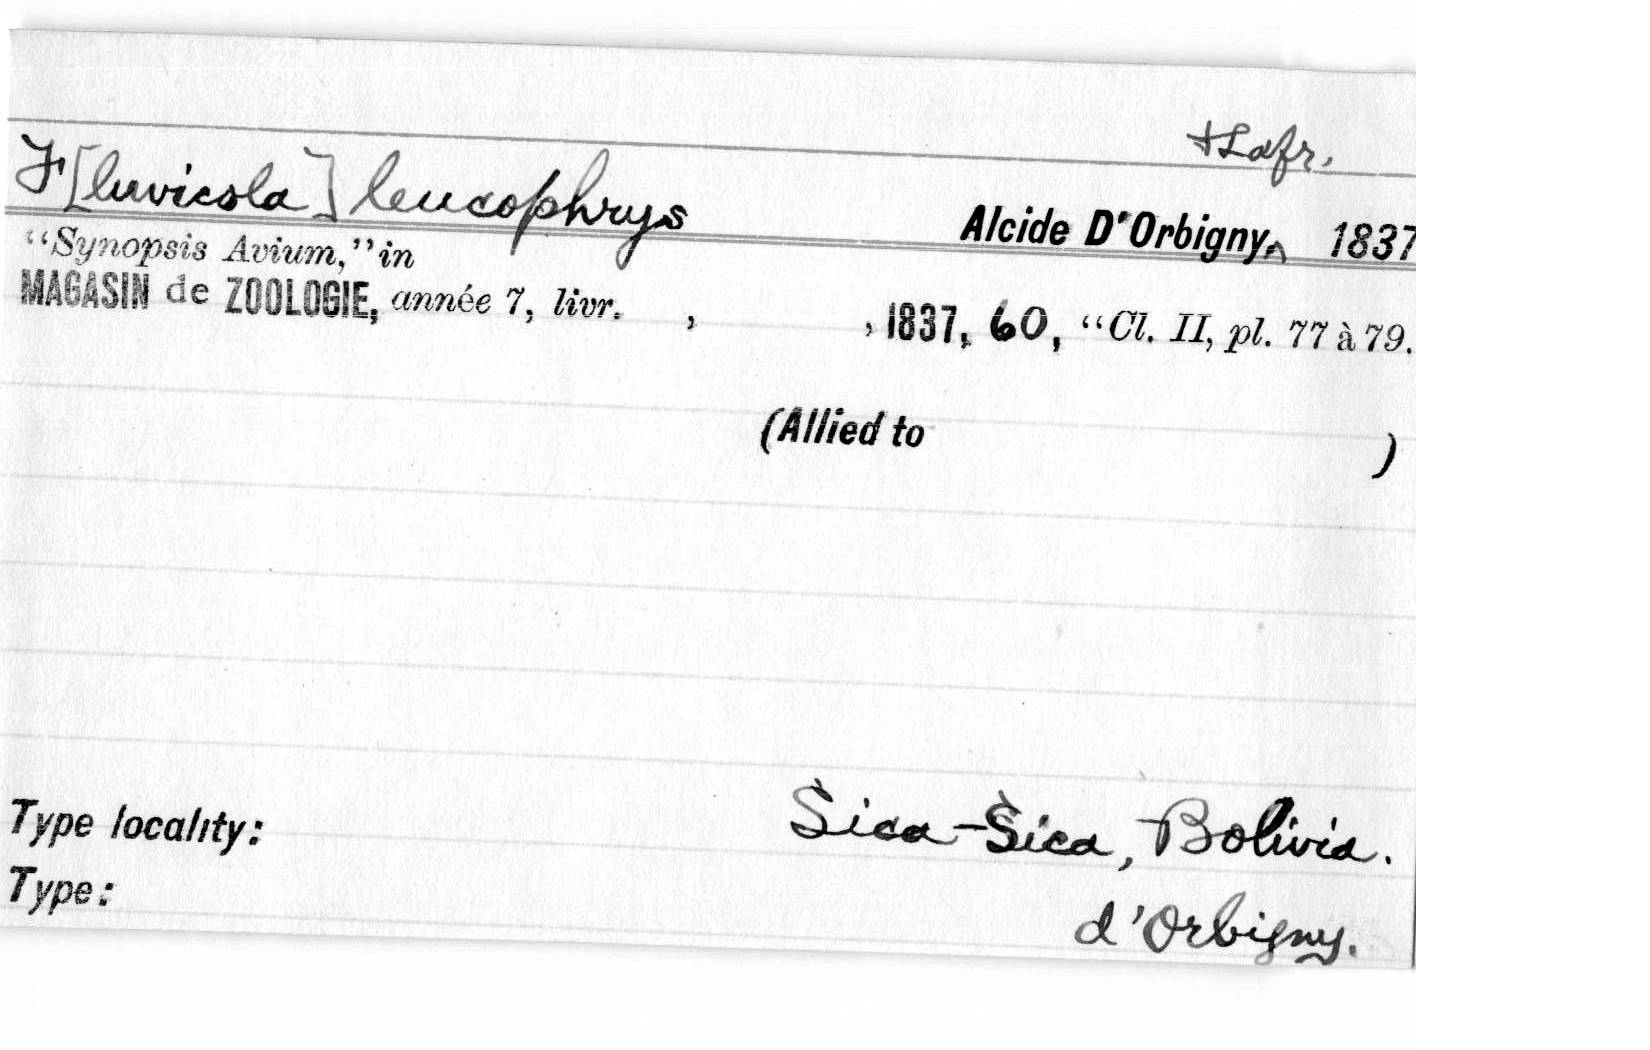 + Lafr.
F[luvicola] leucophrys Alcide D'Orbigny‸ 1837
“Synopsis Avium,” in
MAGASIN de ZOOLOGIE, année 7, livr. , , 1837, 60, “Cl. II, pl. 77 à 79.
(Allied to )
Type locality: Sica-Sica, Bolivia.
Type: d'Orbigny.